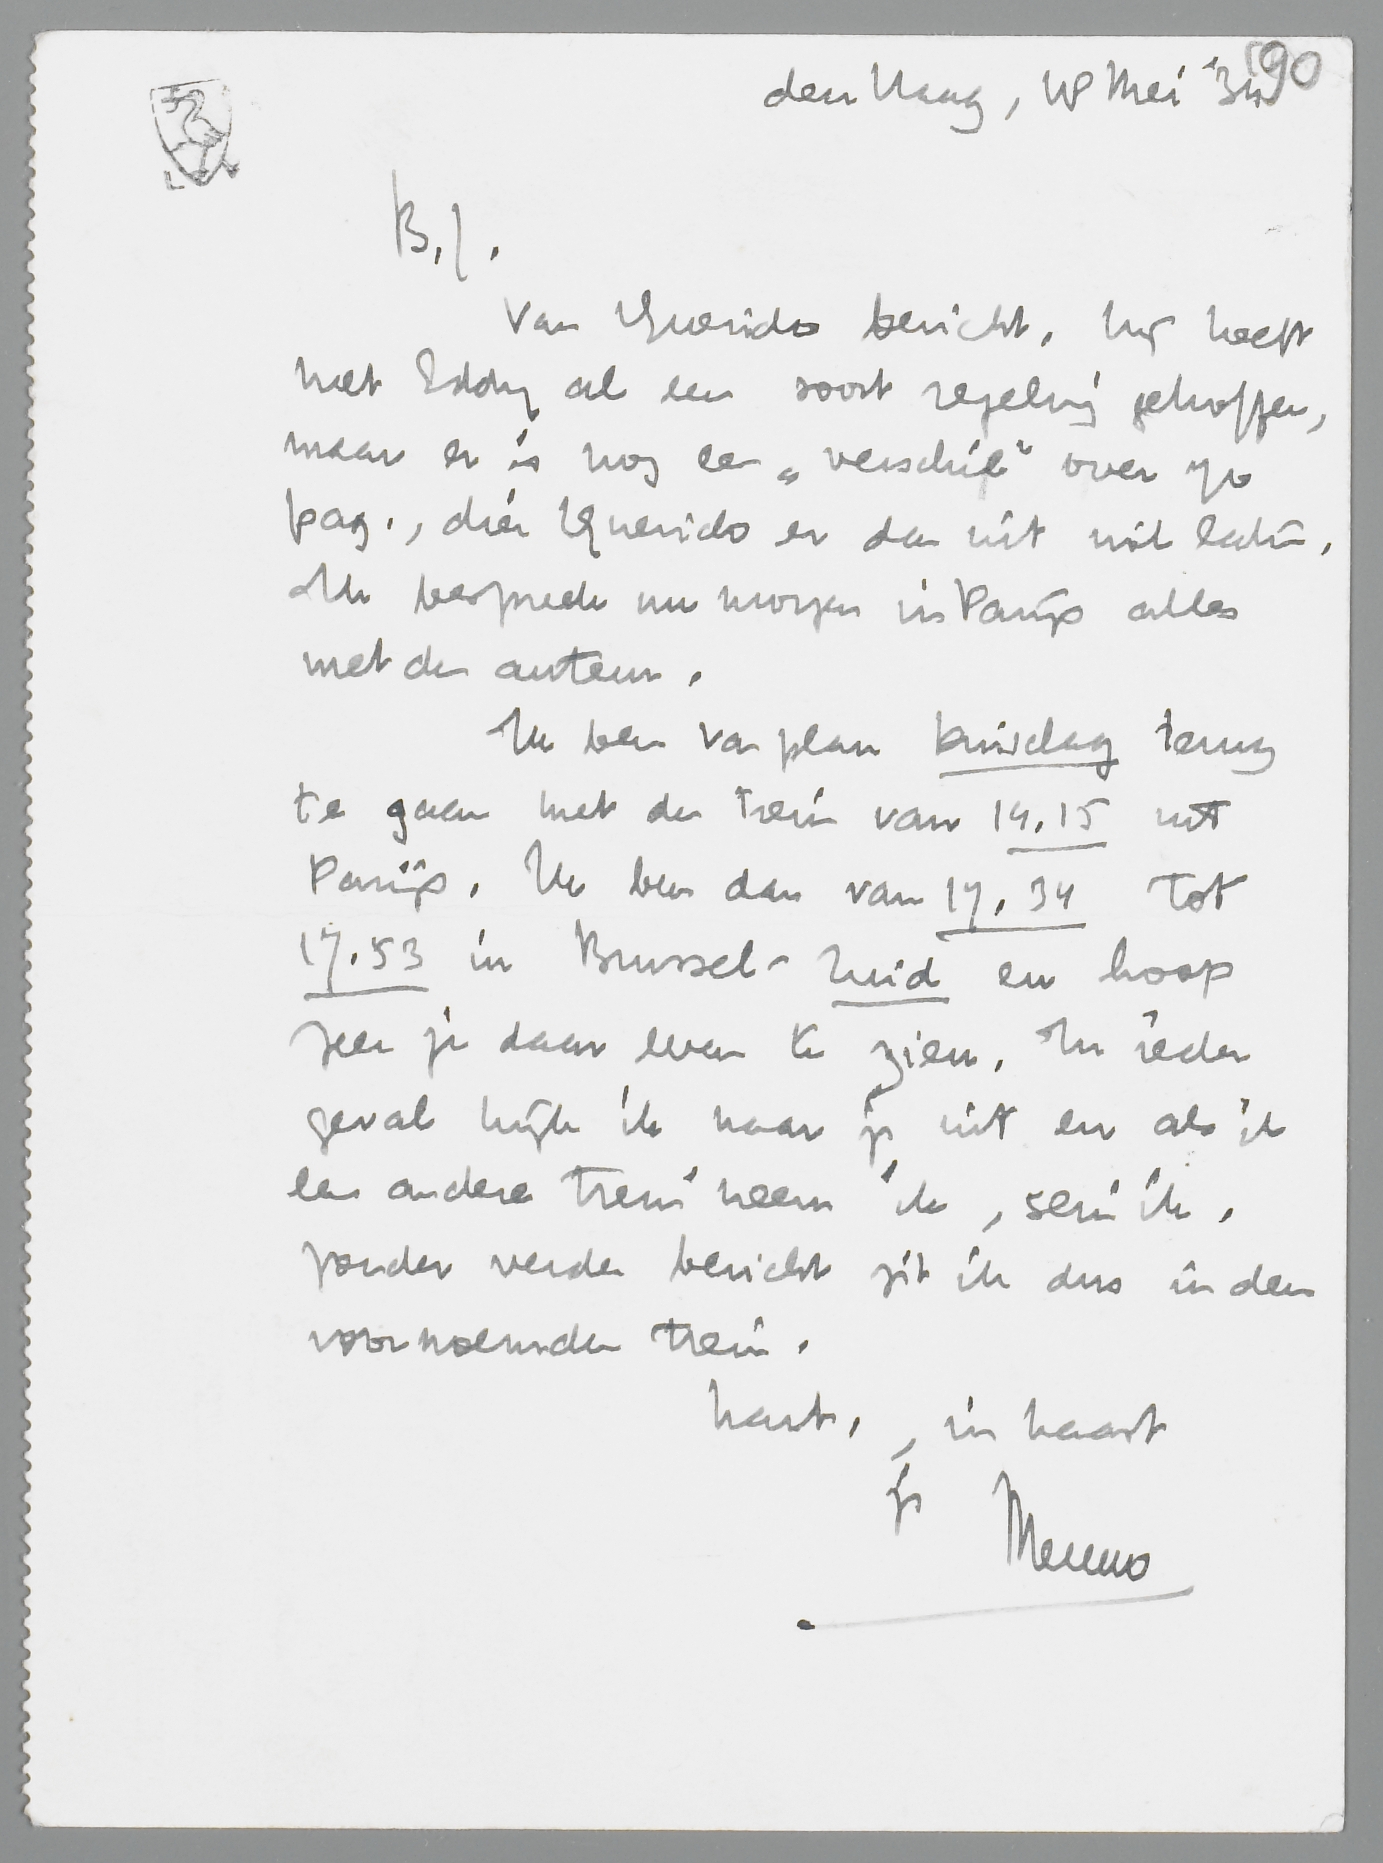 90
den Haag, 18 Mei '34
B.J.
Van Querido bericht. Hij heeft
met Eddy al een soort regeling getroffen,
maar er is nog een „verschil" over 70
pag., die Querido er dan uit wil laten.
Ik bespreek nu morgen in Parijs alles
met den auteur.
Ik ben van plan Dinsdag terug
te gaan met den trein van 14.15 uit
Parijs. Ik ben dan van 17.34 tot
17.53 in Brussel-Zuid en hoop
zeer je daar even te zien. In ieder
geval kijk ik naar je uit en als ik
een andere trein neem, sein ik.
Zonder verder bericht zit ik dus in den
voornoemden trein.
hart., in haast
je Menno